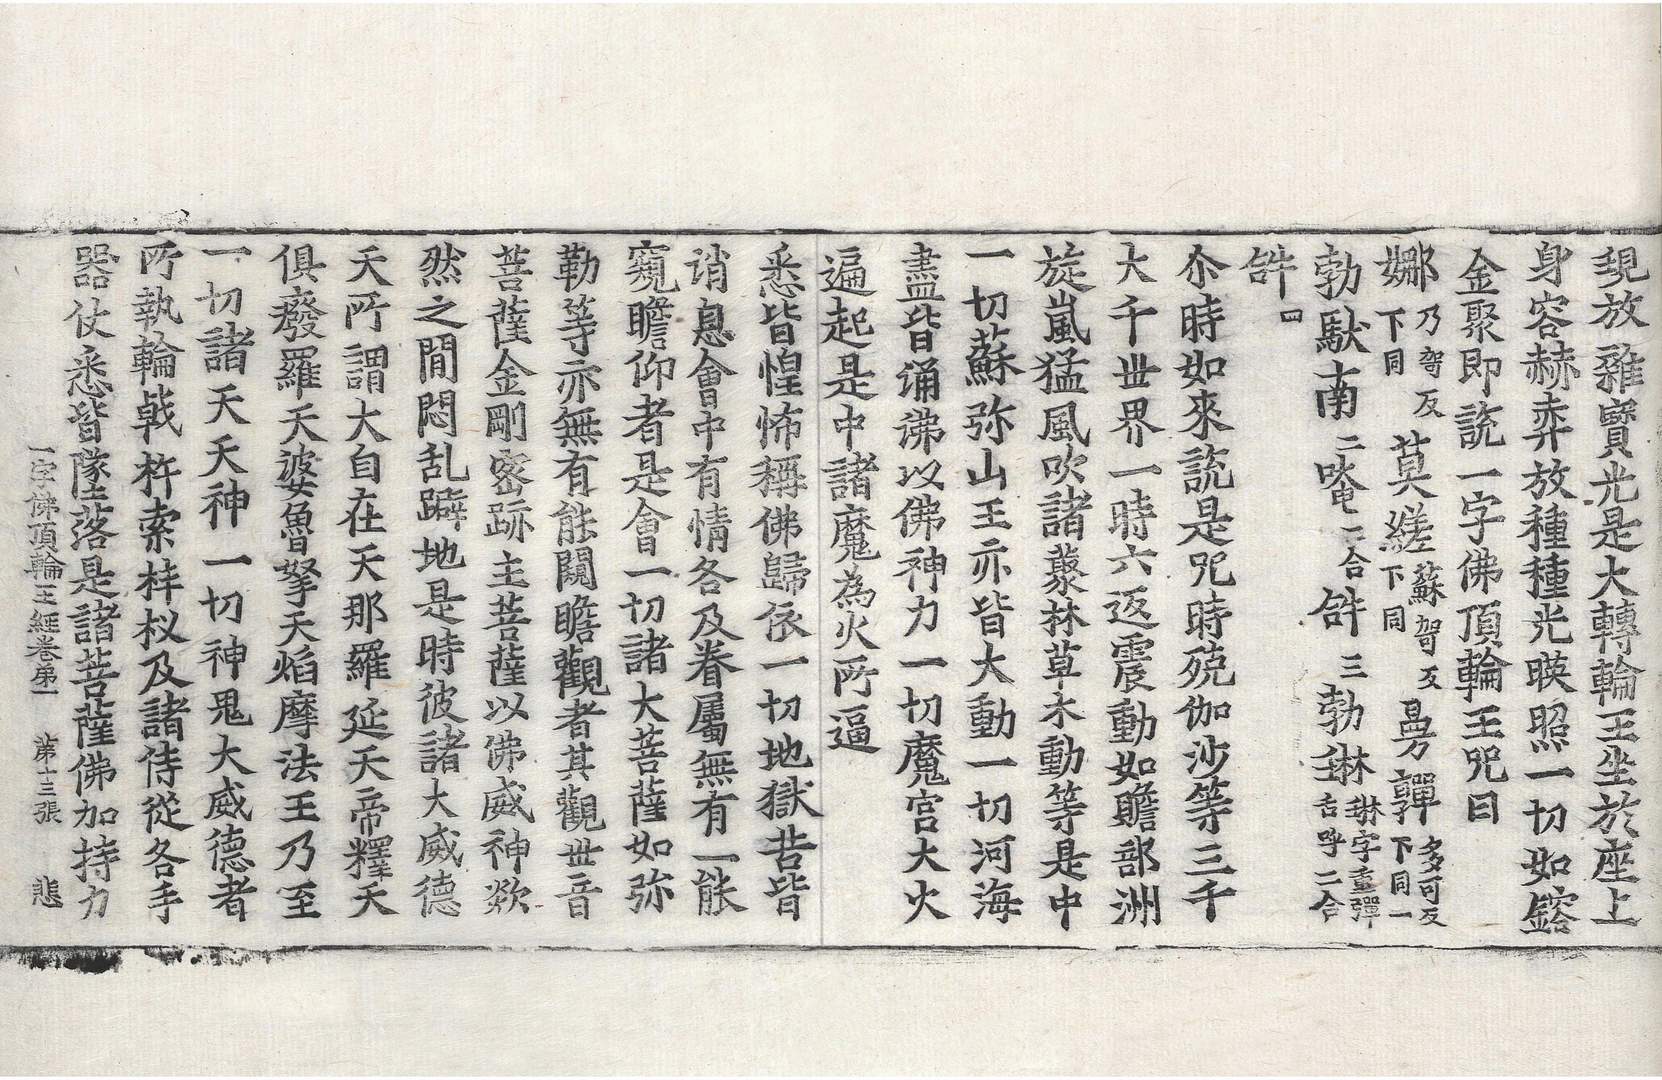 現放雜寶光是大轉輪王坐於座上
身容赫弈放種種光暎照一切如鎔
金聚即說一字佛頂輪王呪曰
娜乃賀反下同莫縒蘇賀反下同曼嚲多可反下同一
勃馱南二唵二合𤙖三勃琳琳字重彈舌呼二合
𤙖四
尒時如來說是呪時殑伽沙等三千
大千世界一時六返震動如贍部洲
旋嵐猛風吹諸叢林草木動等是中
一切蘇弥山王亦皆大動一切河海
盡皆涌沸以佛神力一切魔宮大火
遍起是中諸魔為火所逼
悉皆惶怖稱佛歸依一切地獄苦皆
消息會中有情各及眷屬無有一能
窺瞻仰者是會一切諸大菩薩如弥
勒等亦無有能闚瞻觀者其觀世音
菩薩金剛密跡主菩薩以佛威神欻
然之間悶乱躃地是時彼諸大威德
天所謂大自在天那羅延天帝釋天
俱癈羅天婆魯拏天焰摩法王乃至
一切諸天天神一切神鬼大威德者
所執輪戟杵索棓杈及諸侍從各手
器仗悉皆墜落是諸菩薩佛加持力
一字佛頂輪王經卷第一 第十三張 悲